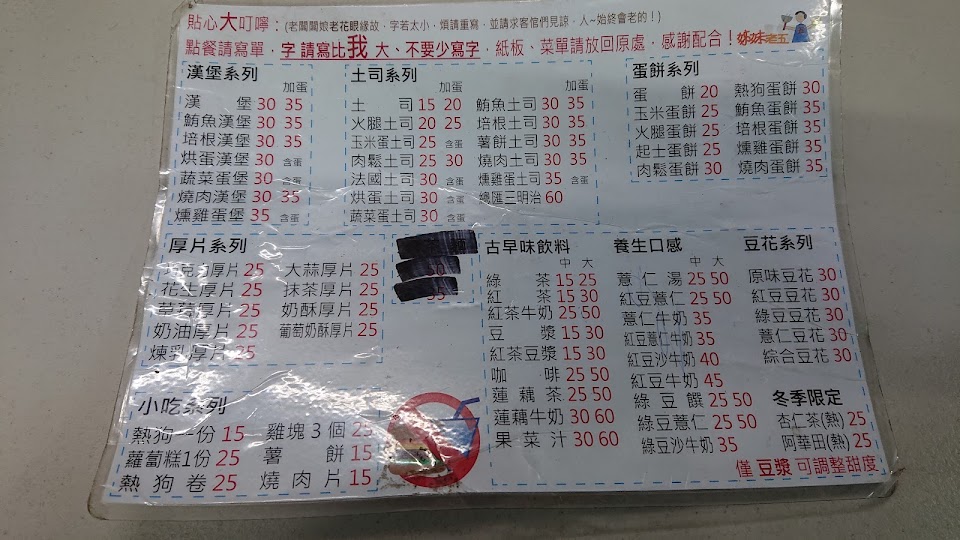 貼心大叮嚀：(老闆闆娘老花眼緣故，字若太小，煩請重寫，並請求客倌們見諒，人~始終會老的！)
點餐請寫單，字 請寫比我 大、不要少寫字，紙板、菜單請放回原處，感謝配合！
妹妹老五
漢堡系列
加蛋
漢堡 30 35
鮪魚漢堡 30 35
培根漢堡 30 35
烘蛋漢堡 30 含蛋
蔬菜蛋堡 30 含蛋
燒肉漢堡 30 35
燻雞蛋堡 35 含蛋
土司系列
加蛋 加蛋
土司 15 20 鮪魚土司 30 35
火腿土司 20 25 培根土司 30 35
玉米蛋土司 25 含蛋 薯餅土司 30 35
肉鬆土司 25 30 燒肉土司 30 35
法國土司 30 含蛋 燻雞蛋土司 35 含蛋
烘蛋土司 30 含蛋 總匯三明治 60
蔬菜蛋土司 30 含蛋
蛋餅系列
蛋餅 20 熱狗蛋餅 30
玉米蛋餅 25 鮪魚蛋餅 35
火腿蛋餅 25 培根蛋餅 35
起士蛋餅 25 燻雞蛋餅 35
肉鬆蛋餅 30 燒肉蛋餅 35
厚片系列
厚片 25 大蒜厚片 25
花生厚片 25 抹茶厚片 25
草莓厚片 25 奶酥厚片 25
奶油厚片 25 葡萄奶酥厚片 25
煉乳厚片 25
小吃系列
熱狗一份 15 雞塊3個 25
蘿蔔糕1份 25 薯餅 15
熱狗卷 25 燒肉片 15
古早味飲料
中 大
綠茶 15 25
紅茶 15 30
紅茶牛奶 25 50
豆漿 15 30
紅茶豆漿 15 30
咖啡 25 50
蓮藕茶 25 50
蓮藕牛奶 30 60
果菜汁 30 60
養生口感
中 大
薏仁湯 25 50
紅豆薏仁 25 50
薏仁牛奶 35
紅豆薏仁牛奶 35
紅豆沙牛奶 40
紅豆牛奶 45
綠豆饌 25 50
綠豆薏仁 25 50
綠豆沙牛奶 35
豆花系列
原味豆花 30
紅豆豆花 30
綠豆豆花 30
薏仁豆花 30
綜合豆花 30
冬季限定
杏仁茶(熱) 25
阿華田(熱) 25
僅 豆漿 可調整甜度